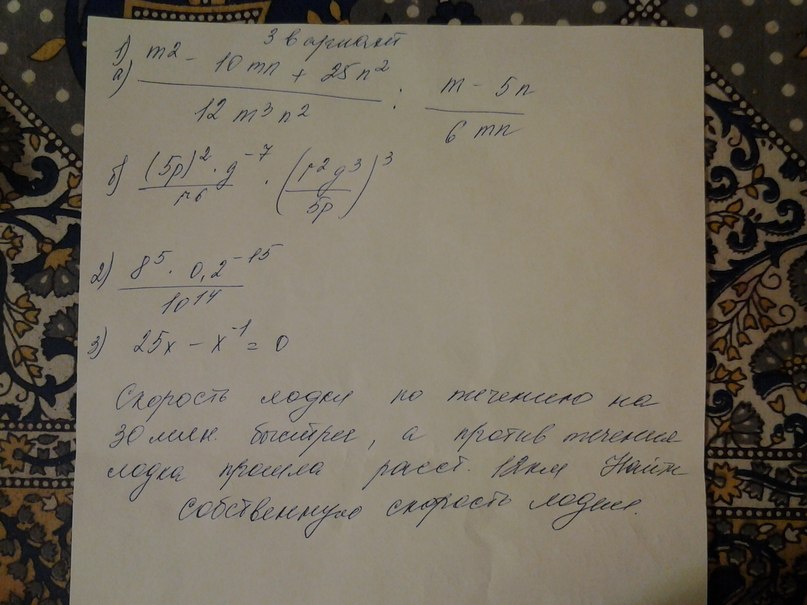 3 вариант
1) а) (m2 - 10mn + 25n²) / (12m³n²) : (m - 5n) / (6mn)
б) ((5p)² · g⁻⁷) / r6 · (r²g³ / 5p)³
2) (8⁵ · 0,2⁻¹⁵) / 10¹⁴
3) 25x - x⁻¹ = 0
Скорость лодки по течению на
30 мин. быстрее, а против течения
лодка прошла расст. 12км Найти
собственную скорость лодки.